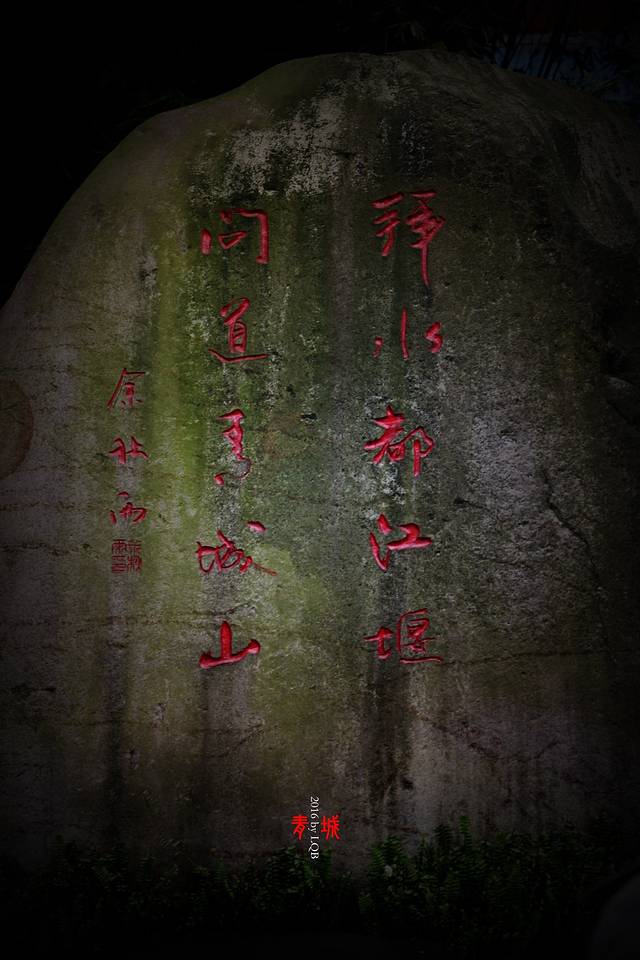 拜水都江堰
问道青城山
余秋雨
青城
2016 by LQB